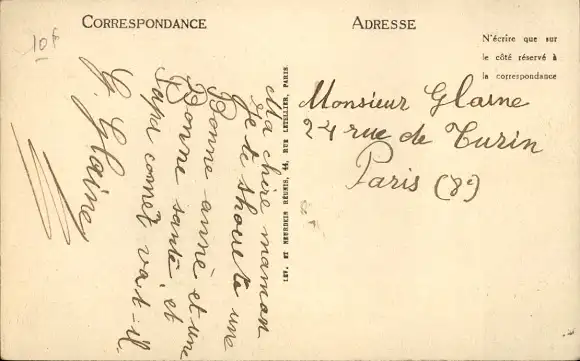 CORRESPONDANCE
ADRESSE
N'écrire que sur
le côté réservé à
la correspondance
10f
Ma chère maman
Je te shouete une
Bonne anné et une
Bonne santé et
Papa comet va-t-il
G. Glaine
LEV. ET NEURDEIN RÉUNIS, 44, RUE LETELLIER, PARIS
Monsieur Glaine
24 rue de Turin
Paris (8e)